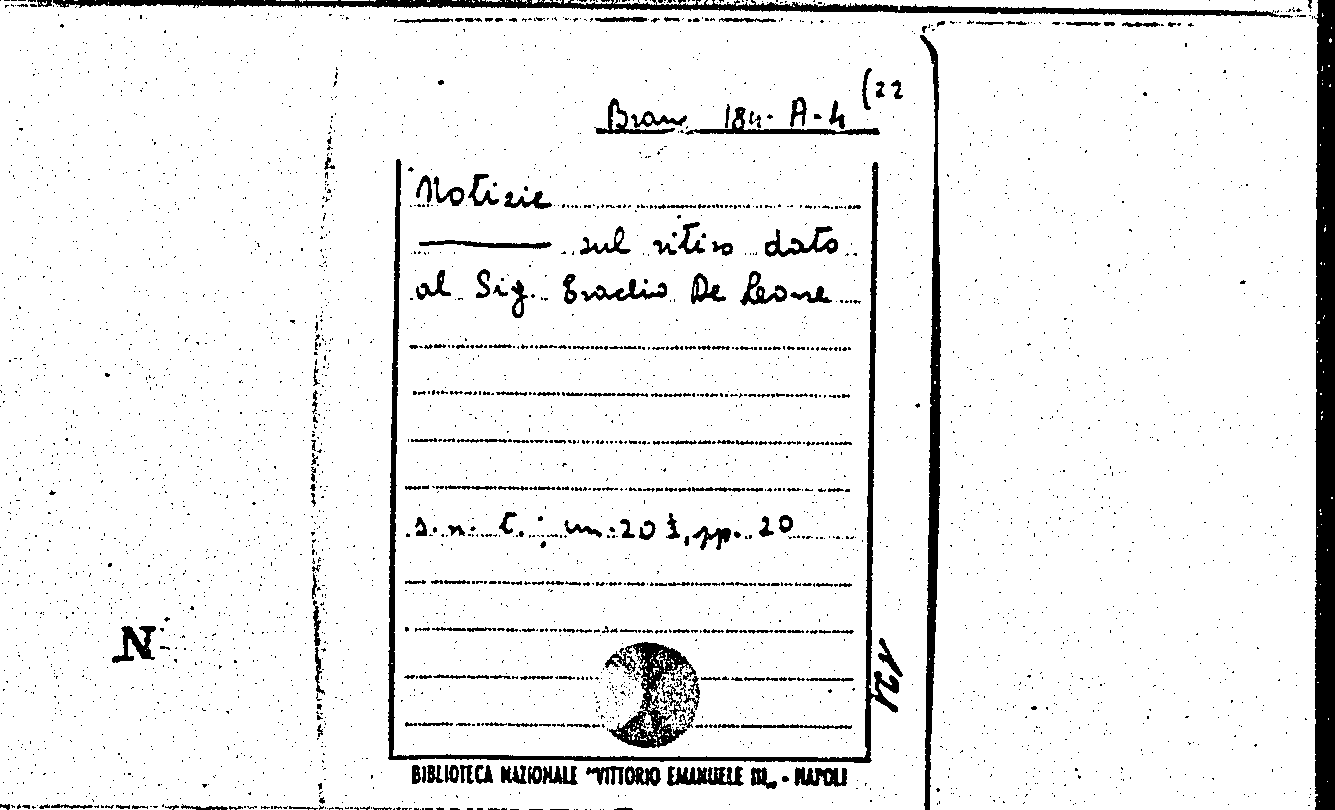 Branc 184- A-4 (22
Notizie
sul ritiro dato
al Sig. Eraclio De Leone
s.n.t.; in-20 s, pp. 20
N
121
BIBLIOTECA NAZIONALE "VITTORIO EMANUELE III" - NAPOLI